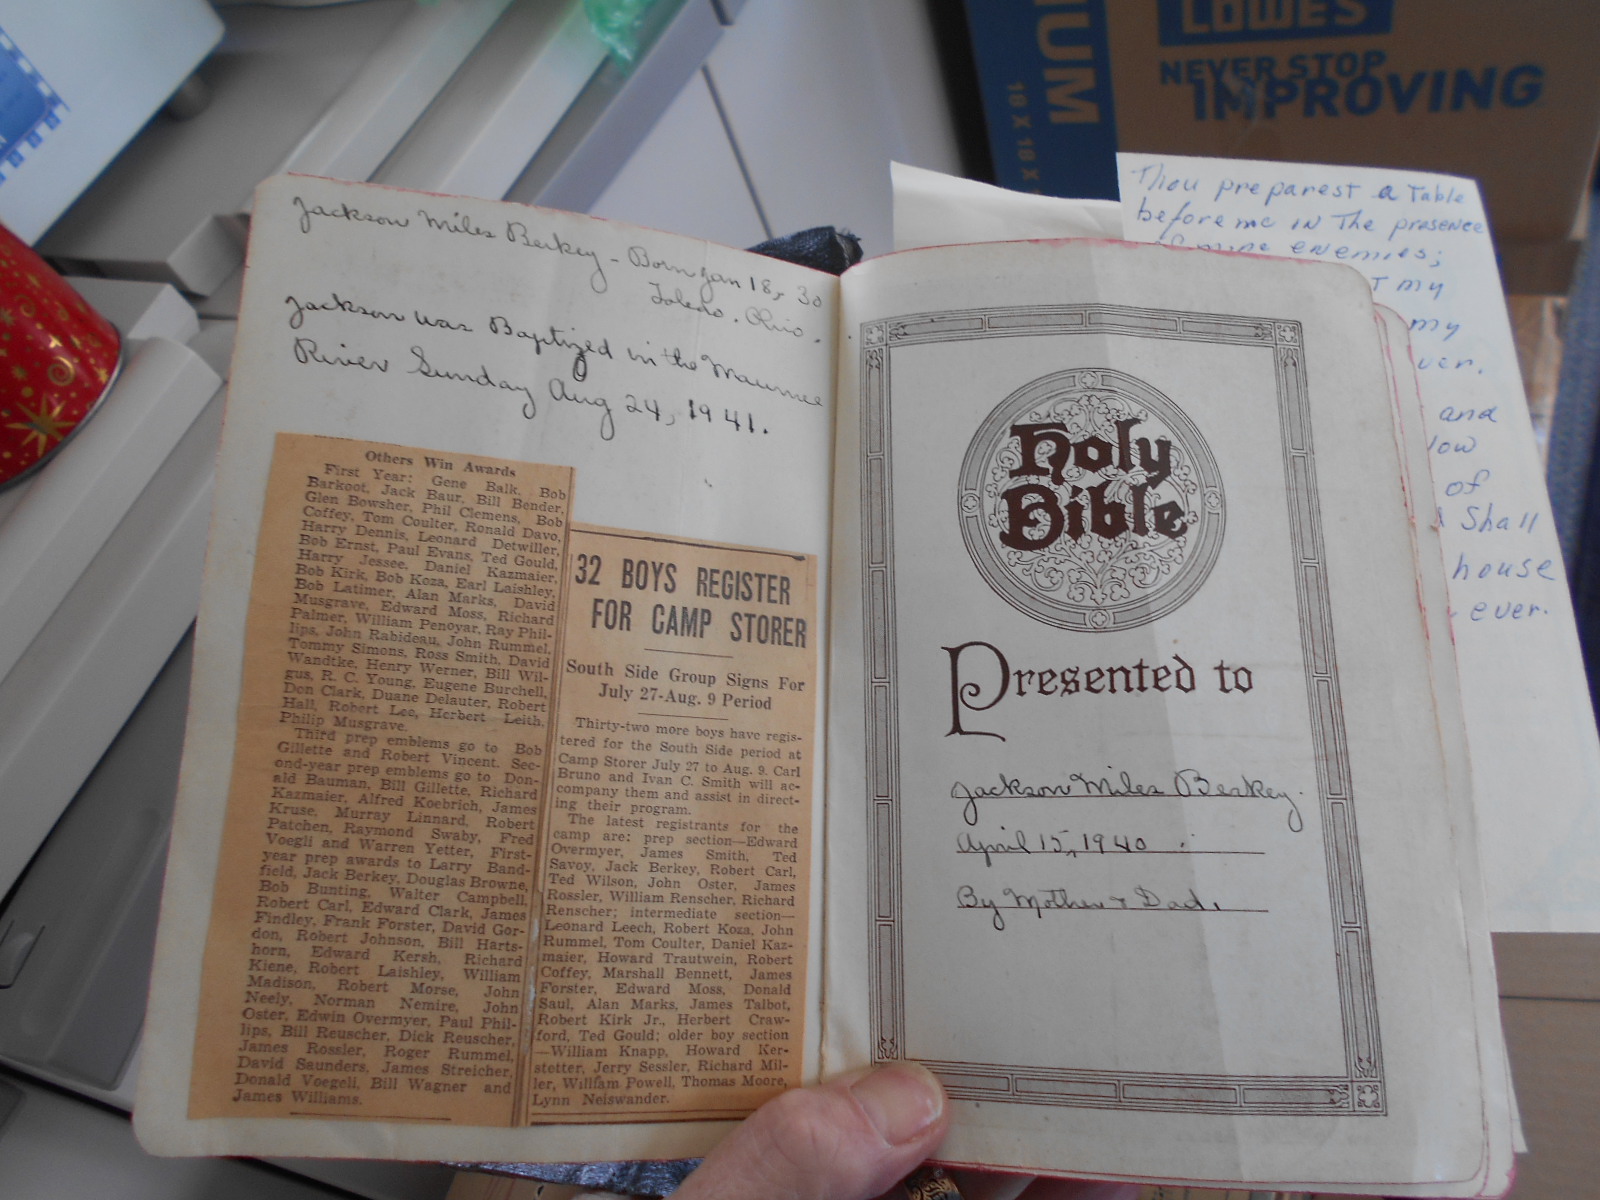 Jackson Miles Berkey - Born Jan 18, 30
Toledo, Ohio.
Jackson was Baptized in the Maumee
River Sunday Aug 24, 1941.
Others Win Awards
First Year: Gene Balk, Bob
Barkoot, Jack Baur, Bill Bender,
Glen Bowsher, Phil Clemens, Bob
Coffey, Tom Coulter, Ronald Davo,
Harry Dennis, Leonard Detwiller,
Bob Ernst, Paul Evans, Ted Gould,
Harry Jessee, Daniel Kazmaier,
Bob Kirk, Bob Koza, Earl Laishley,
Bob Latimer, Alan Marks, David
Musgrave, Edward Moss, Richard
Palmer, William Penoyar, Ray Phil-
lips, John Rabideau, John Rummel,
Tommy Simons, Ross Smith, David
Wandtke, Henry Werner, Bill Wil-
gus, R. C. Young, Eugene Burchell,
Don Clark, Duane Delauter, Robert
Hall, Robert Lee, Herbert Leith,
Philip Musgrave.
Third prep emblems go to Bob
Gillette and Robert Vincent. Sec-
ond-year prep emblems go to Don-
ald Bauman, Bill Gillette, Richard
Kazmaier, Alfred Koebrich, James
Kruse, Murray Linnard, Robert
Patchen, Raymond Swaby, Fred
Voegli and Warren Yetter, First-
year prep awards to Larry Band-
field, Jack Berkey, Douglas Browne,
Bob Bunting, Walter Campbell,
Robert Carl, Edward Clark, James
Findley, Frank Forster, David Gor-
don, Robert Johnson, Bill Harts-
horn, Edward Kersh, Richard
Kiene, Robert Laishley, William
Madison, Robert Morse, John
Neely, Norman Nemire, John
Oster, Edwin Overmyer, Paul Phil-
lips, Bill Reuscher, Dick Reuscher,
James Rossler, Roger Rummel,
David Saunders, James Streicher,
Donald Voegeli, Bill Wagner and
James Williams.
32 BOYS REGISTER
FOR CAMP STORER
South Side Group Signs For
July 27-Aug. 9 Period
Thirty-two more boys have regis-
tered for the South Side period at
Camp Storer July 27 to Aug. 9. Carl
Bruno and Ivan C. Smith will ac-
company them and assist in direct-
ing their program.
The latest registrants for the
camp are: prep section—Edward
Overmyer, James Smith, Ted
Savoy, Jack Berkey, Robert Carl,
Ted Wilson, John Oster, James
Rossler, William Renscher, Richard
Renscher; intermediate section—
Leonard Leech, Robert Koza, John
Rummel, Tom Coulter, Daniel Kaz-
maier, Howard Trautwein, Robert
Coffey, Marshall Bennett, James
Forster, Edward Moss, Donald
Saul, Alan Marks, James Talbot,
Robert Kirk Jr., Herbert Craw-
ford, Ted Gould; older boy section
—William Knapp, Howard Ker-
stetter, Jerry Sessler, Richard Mil-
ler, William Powell, Thomas Moore,
Lynn Neiswander.
Holy
Bible
Presented to
Jackson Miles Berkey.
April 15, 1940
By Mother & Dad.
Thou preparest a Table
before me in The presence
of mine enemies;
my
my
ver.
and
low
of
Shall
house
ever.
LOWE'S
NEVER STOP
IMPROVING
IUM
18 X 18 X